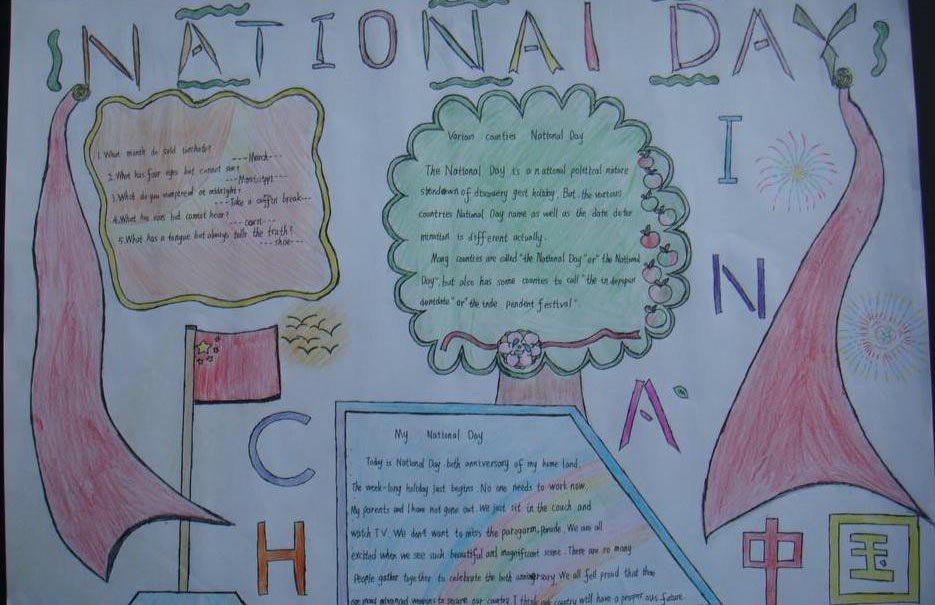 NATIONAL DAY
1. What month do sold
---March---
2. What has four eyes but cannot see?
---Mississippi---
3. What do you
at midnight?
---Take a coffin break---
4. What has ears but cannot hear?
---corn---
5. What has a tongue but always talk the truth?
---shoe---
Various countries National Day
The National Day is a national political nature
of gest holiday. But the various
countries National Day name as well as the date deter
mination is different actually.
Many countries are called "the National Day" or "the National
Day", but also has some countes to call "the
" or "the inde pendent festival".
C
H
I
N
A
中国
My National Day
Today is National Day - both anniversary of my home land.
The week-long holiday just begins. No one needs to work now.
My parents and I have not gone out. We just sit in the couch and
watch TV. We don't want to miss the parade. We are all
excited when we see such beautiful and magnificent scene. There are so many
People gather together to celebrate the both anniversary. We all fell proud that there
are many advanced weapons to secure our country. I think our country will have a future